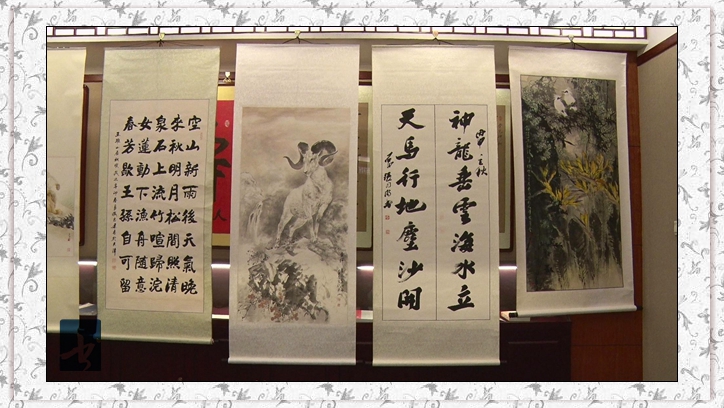 神龍乘雲海水立
天馬行地塵沙開
空山新雨後天氣晚
來秋明月松間照清
泉石上流竹喧歸浣
女蓮動下漁舟隨意
春芳歇王孫自可留
人